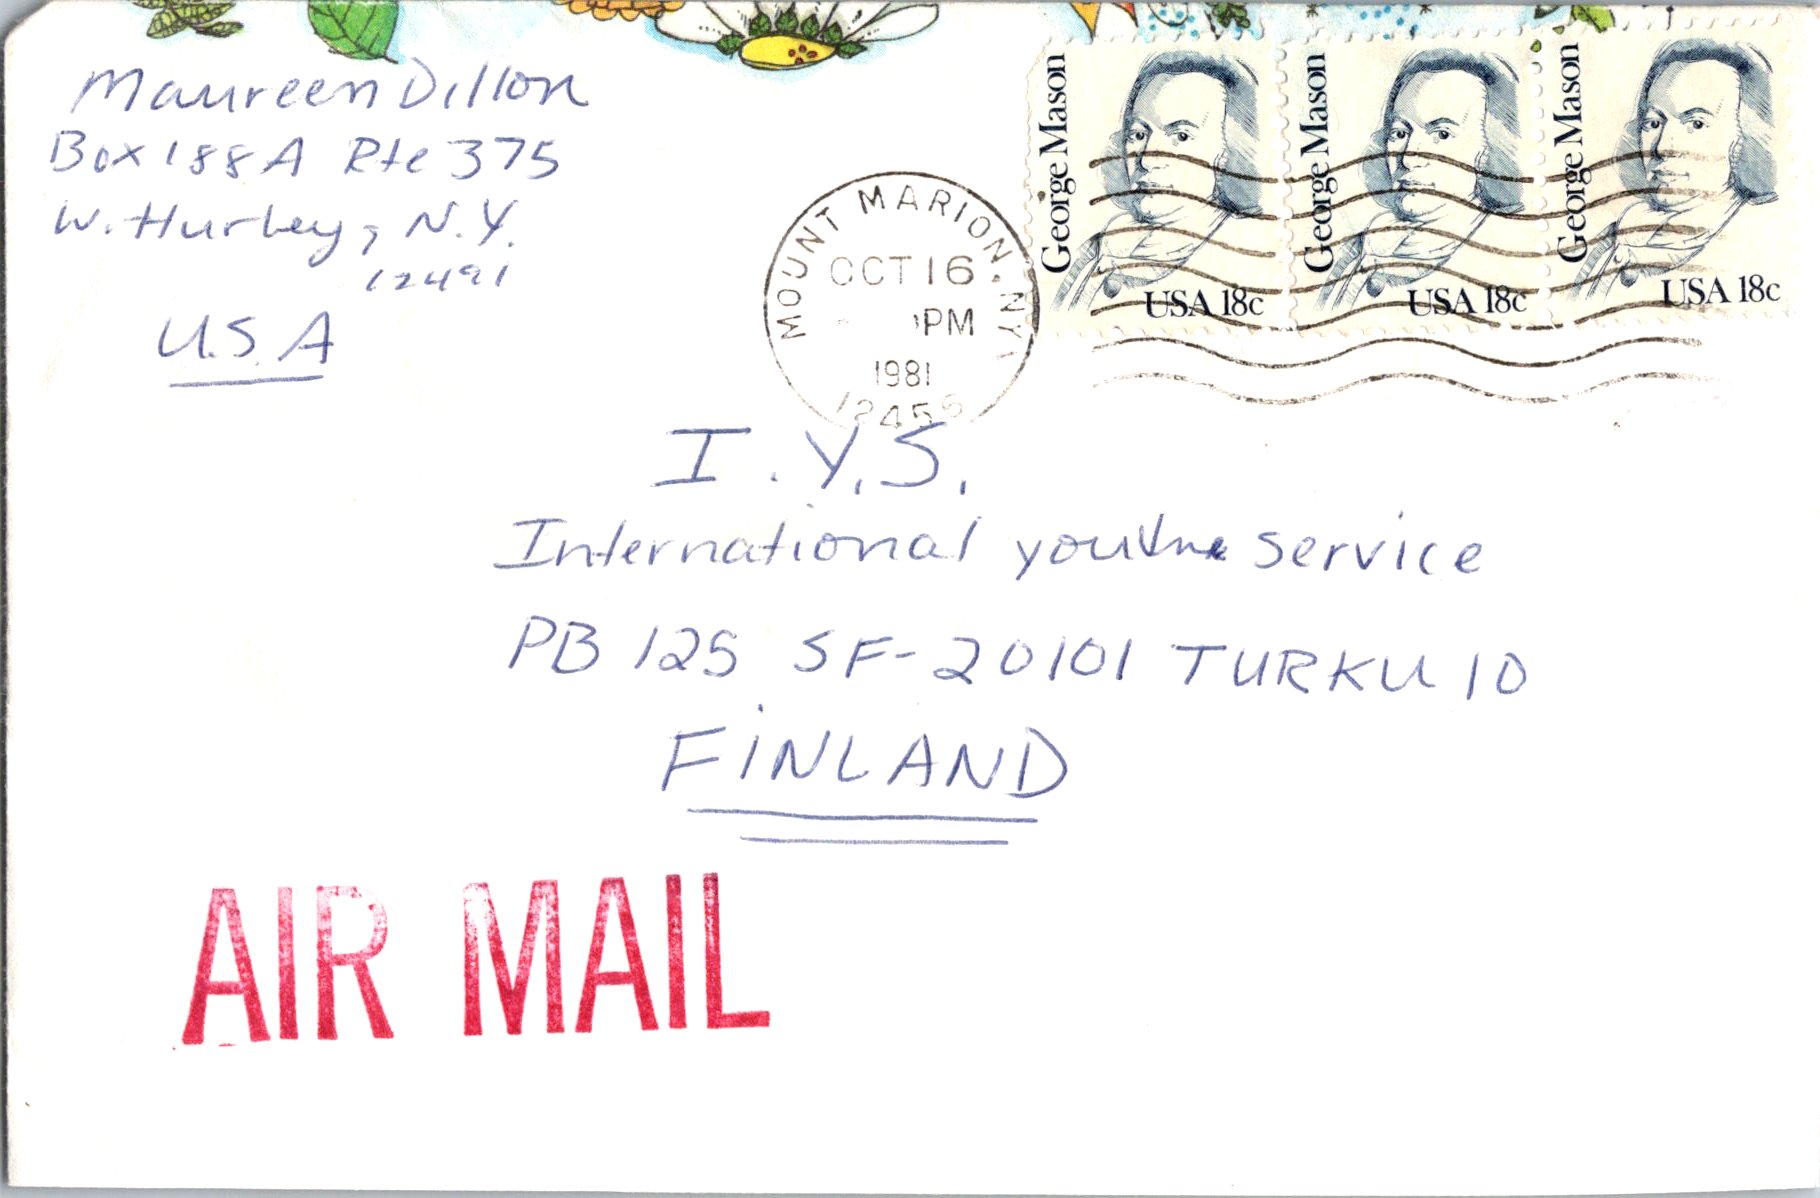 Maureen Dillon
Box 188A Rte 375
W. Hurley, N.Y.
12491
U.S.A
MOUNT MARION, NY
OCT 16
PM
1981
12456
George Mason
USA 18c
George Mason
USA 18c
George Mason
USA 18c
I.Y.S.
International youth service
PB 125 SF-20101 TURKU 10
FINLAND
AIR MAIL